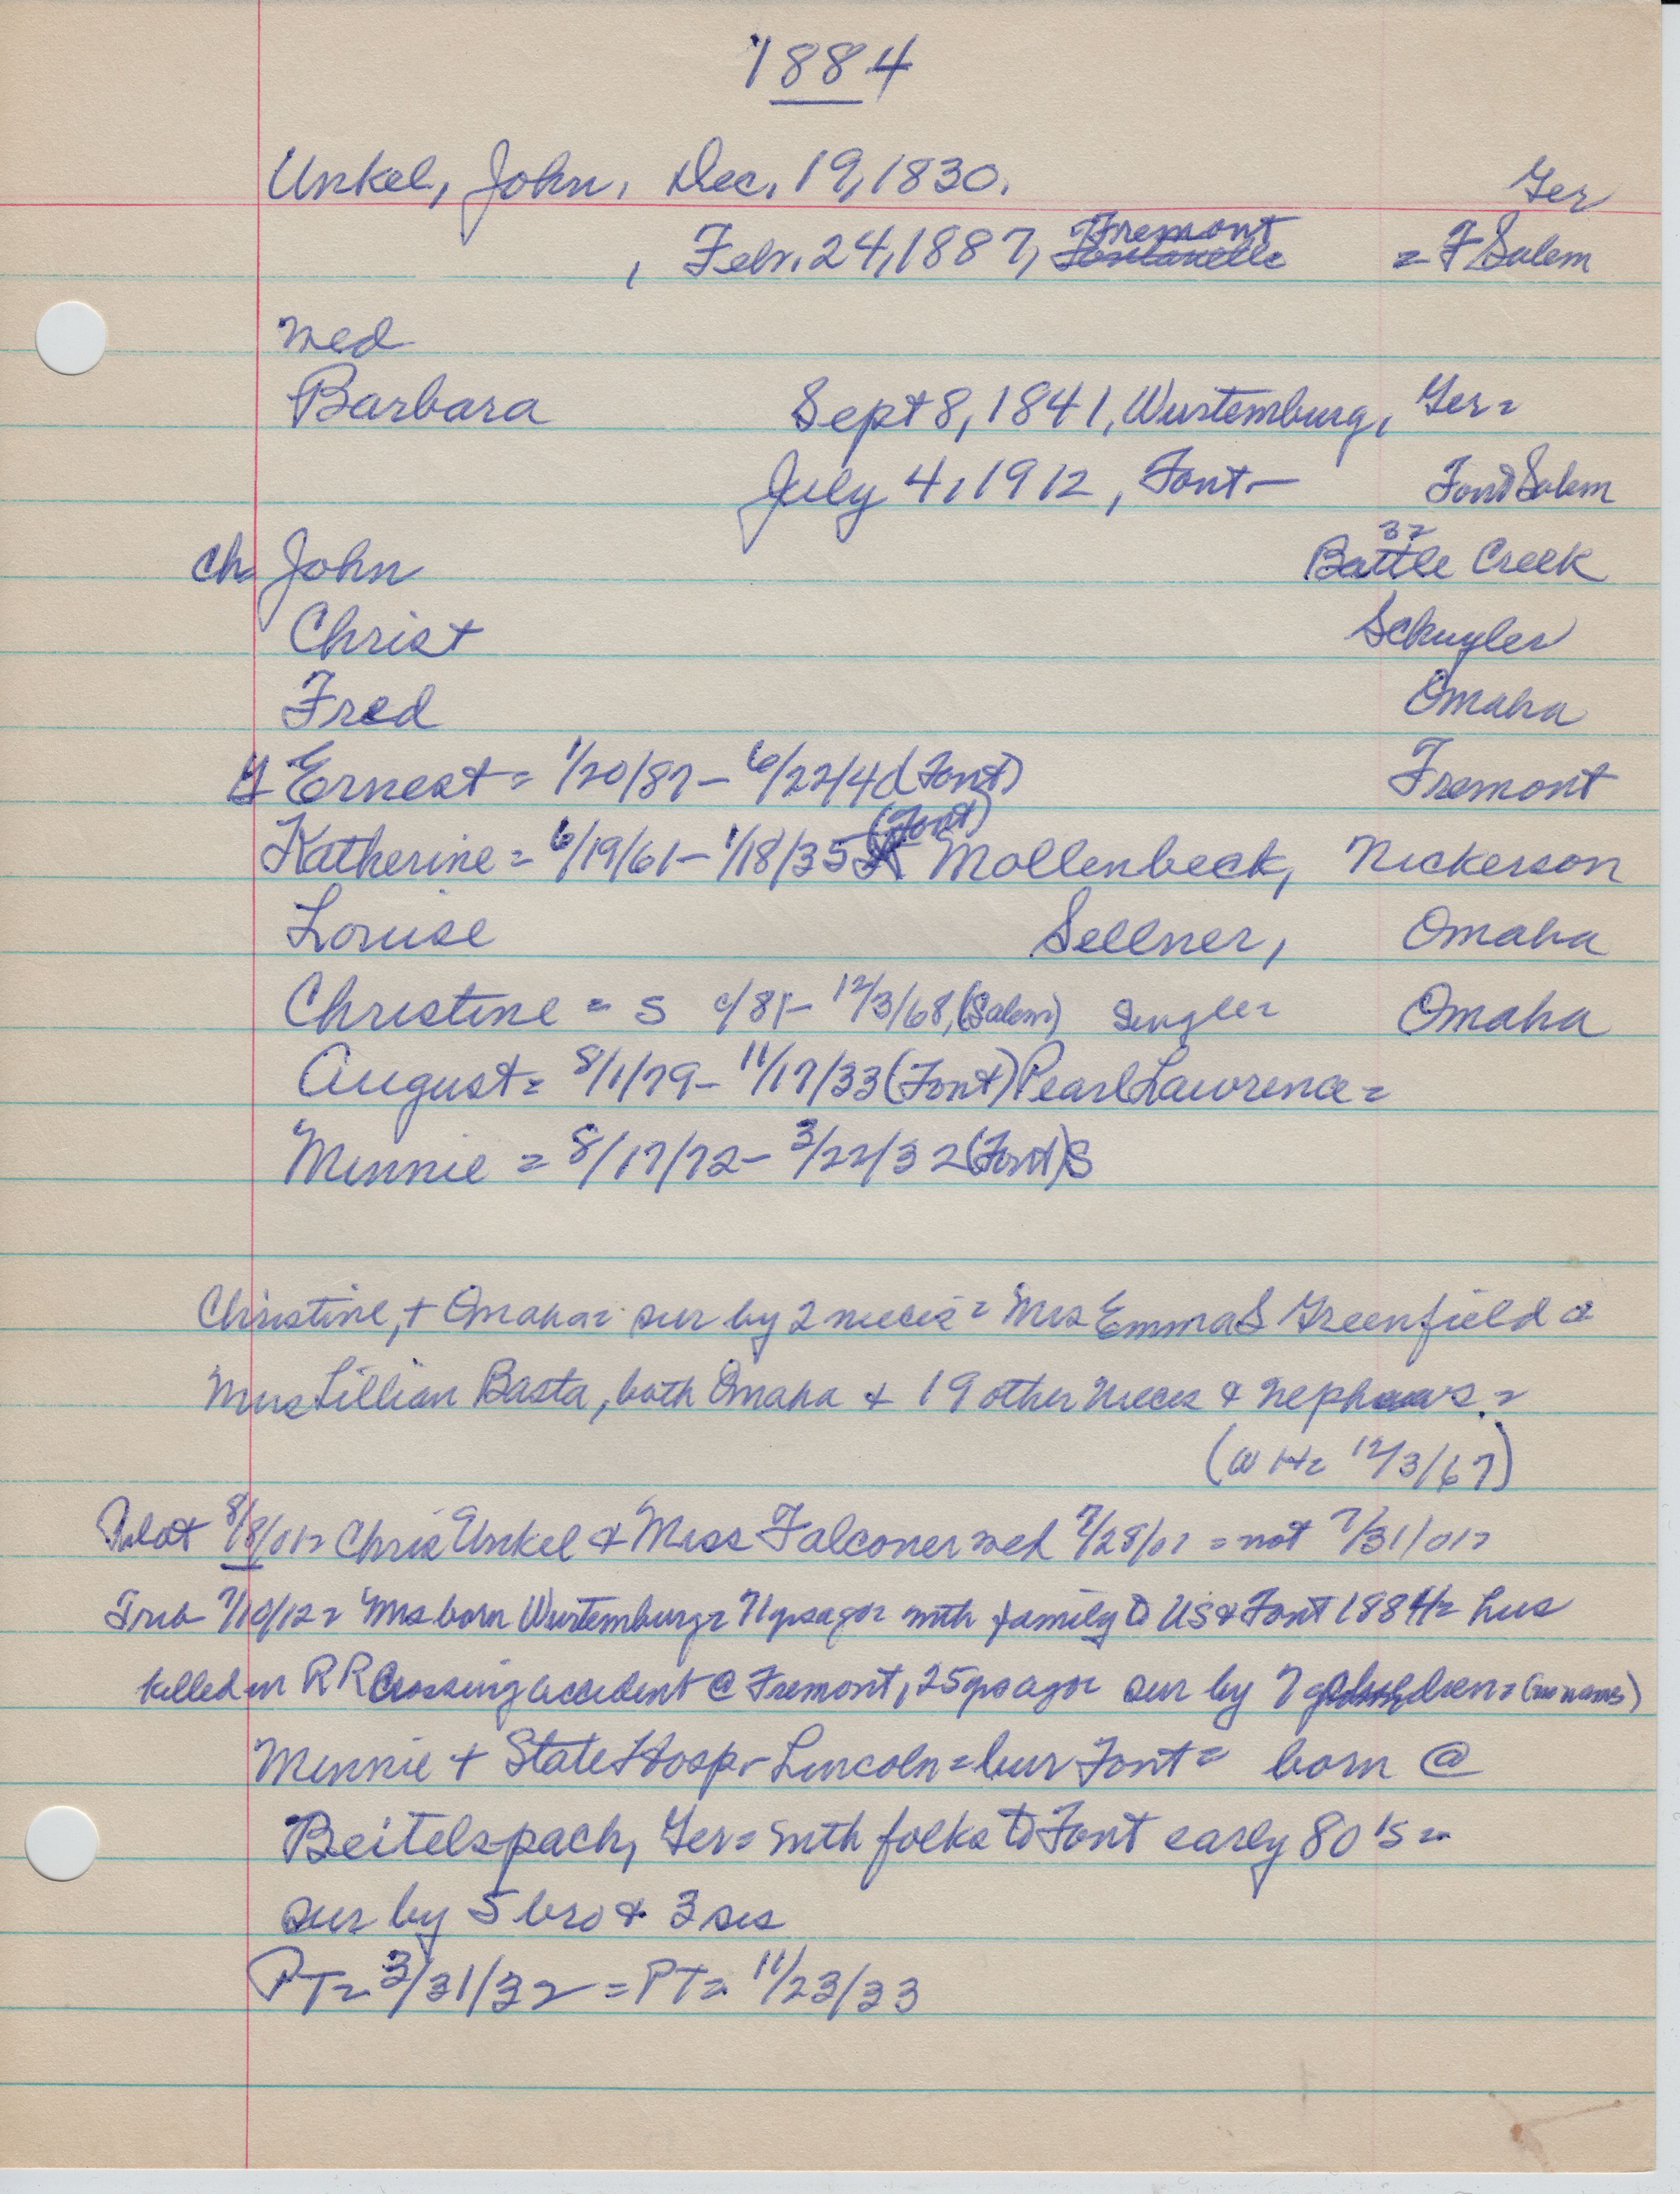 1884
Unkel, John, Dec. 19, 1830. Ger
, Febr. 24, 1887, Fremont = F Salem
wed
Barbara Sept 8, 1841, Wurtemburg, Ger =
July 4, 1912, Font - Font Salem
32
ch John Battle Creek
Christ Schuyler
Fred Omaha
Ernest = 1/20/87 - 6/22/4 (Font) Fremont
(Font)
Katherine = 6/19/61 - 1/18/35 Mollenbeck, Nickerson
Louise Sellner, Omaha
Christine = S c/81 - 12/3/68, (Salem) Single = Omaha
August = 8/1/79 - 11/17/33 (Font) Pearl Lawrence =
Minnie = 8/17/72 - 3/22/32 (Font) S
Christine, + Omaha = sur by 2 nieces = Mrs Emma S Greenfield &
Mrs Lillian Basta, both Omaha & 19 other nieces & nephews. =
(WH = 12/3/67)
8/8/01 = Chris Unkel & Miss Falconer wed 7/28/01 = not 7/31/01 =
Trib 7/10/12 = Mrs born Wurtemburg = 71 yrs ago = with family to US & Font 1884 = hus
killed in RR Crossing accident @ Fremont, 25 yrs ago = sur by 7 = (no names)
Minnie + State Hosp - Lincoln = bur Font = born @
Beitelspach, Ger = with folks to Font early 80's =
sur by 5 bro & 3 sis
PT = 3/31/32 = PT = 11/23/33